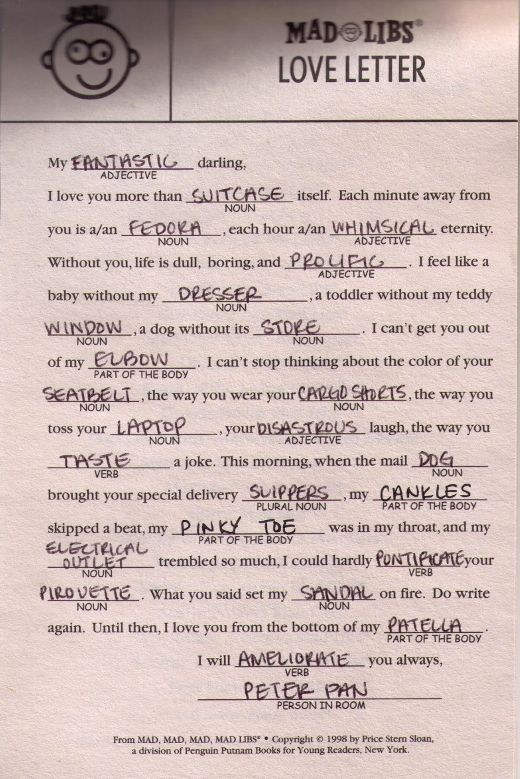 MAD LIBS®
LOVE LETTER
My FANTASTIC darling,
ADJECTIVE
I love you more than SUITCASE itself. Each minute away from
NOUN
you is a/an FEDORA, each hour a/an WHIMSICAL eternity.
NOUN ADJECTIVE
Without you, life is dull, boring, and PROLIFIC. I feel like a
ADJECTIVE
baby without my DRESSER, a toddler without my teddy
NOUN
WINDOW, a dog without its STORE. I can't get you out
NOUN NOUN
of my ELBOW. I can't stop thinking about the color of your
PART OF THE BODY
SEATBELT, the way you wear your CARGO SHORTS, the way you
NOUN NOUN
toss your LAPTOP, your DISASTROUS laugh, the way you
NOUN ADJECTIVE
TASTE a joke. This morning, when the mail DOG
VERB NOUN
brought your special delivery SLIPPERS, my CANKLES
PLURAL NOUN PART OF THE BODY
skipped a beat, my PINKY TOE was in my throat, and my
PART OF THE BODY
ELECTRICAL
OUTLET trembled so much, I could hardly PONTIFICATE your
NOUN VERB
PIROUETTE. What you said set my SANDAL on fire. Do write
NOUN NOUN
again. Until then, I love you from the bottom of my PATELLA.
PART OF THE BODY
I will AMELIORATE you always,
VERB
PETER PAN
PERSON IN ROOM
From MAD, MAD, MAD, MAD LIBS® • Copyright © 1998 by Price Stern Sloan,
a division of Penguin Putnam Books for Young Readers, New York.